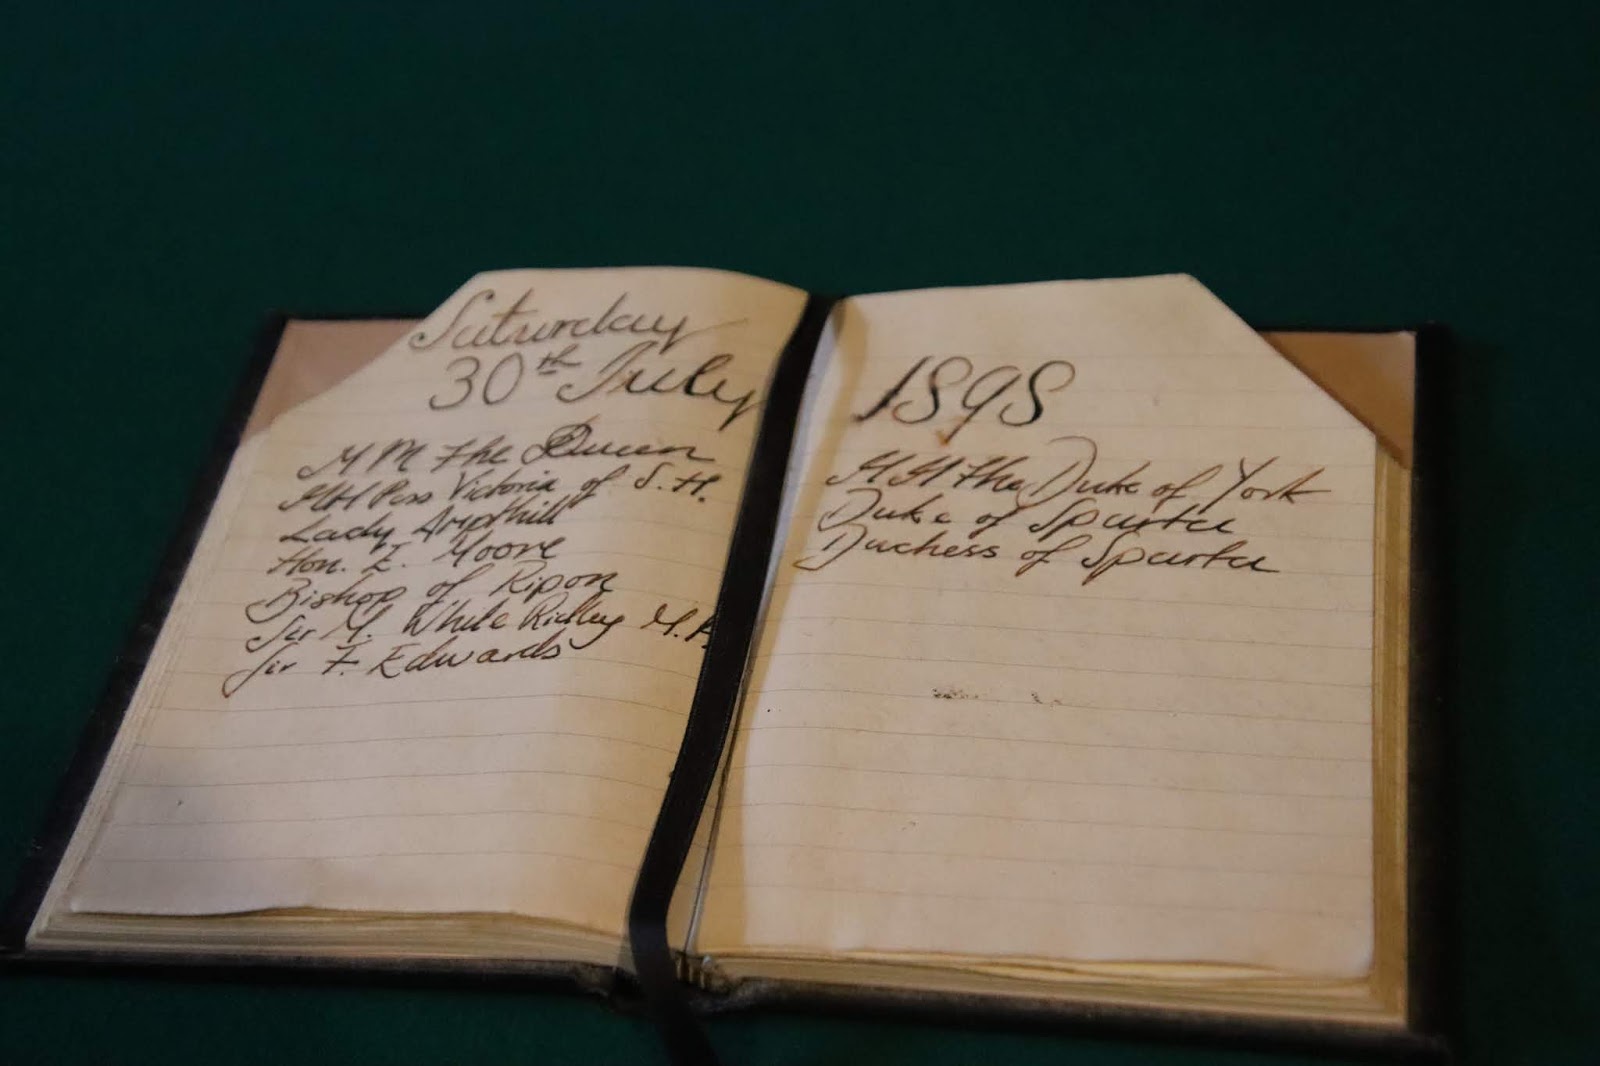 Saturday
30th July
H M The Queen
HH Pess Victoria of S. H.
Lady Ampthill
Hon. E. Moore
Bishop of Ripon
Sir M. White Ridley M.P.
Sir F. Edwards
1898
H H The Duke of York
Duke of Sparta
Duchess of Sparta